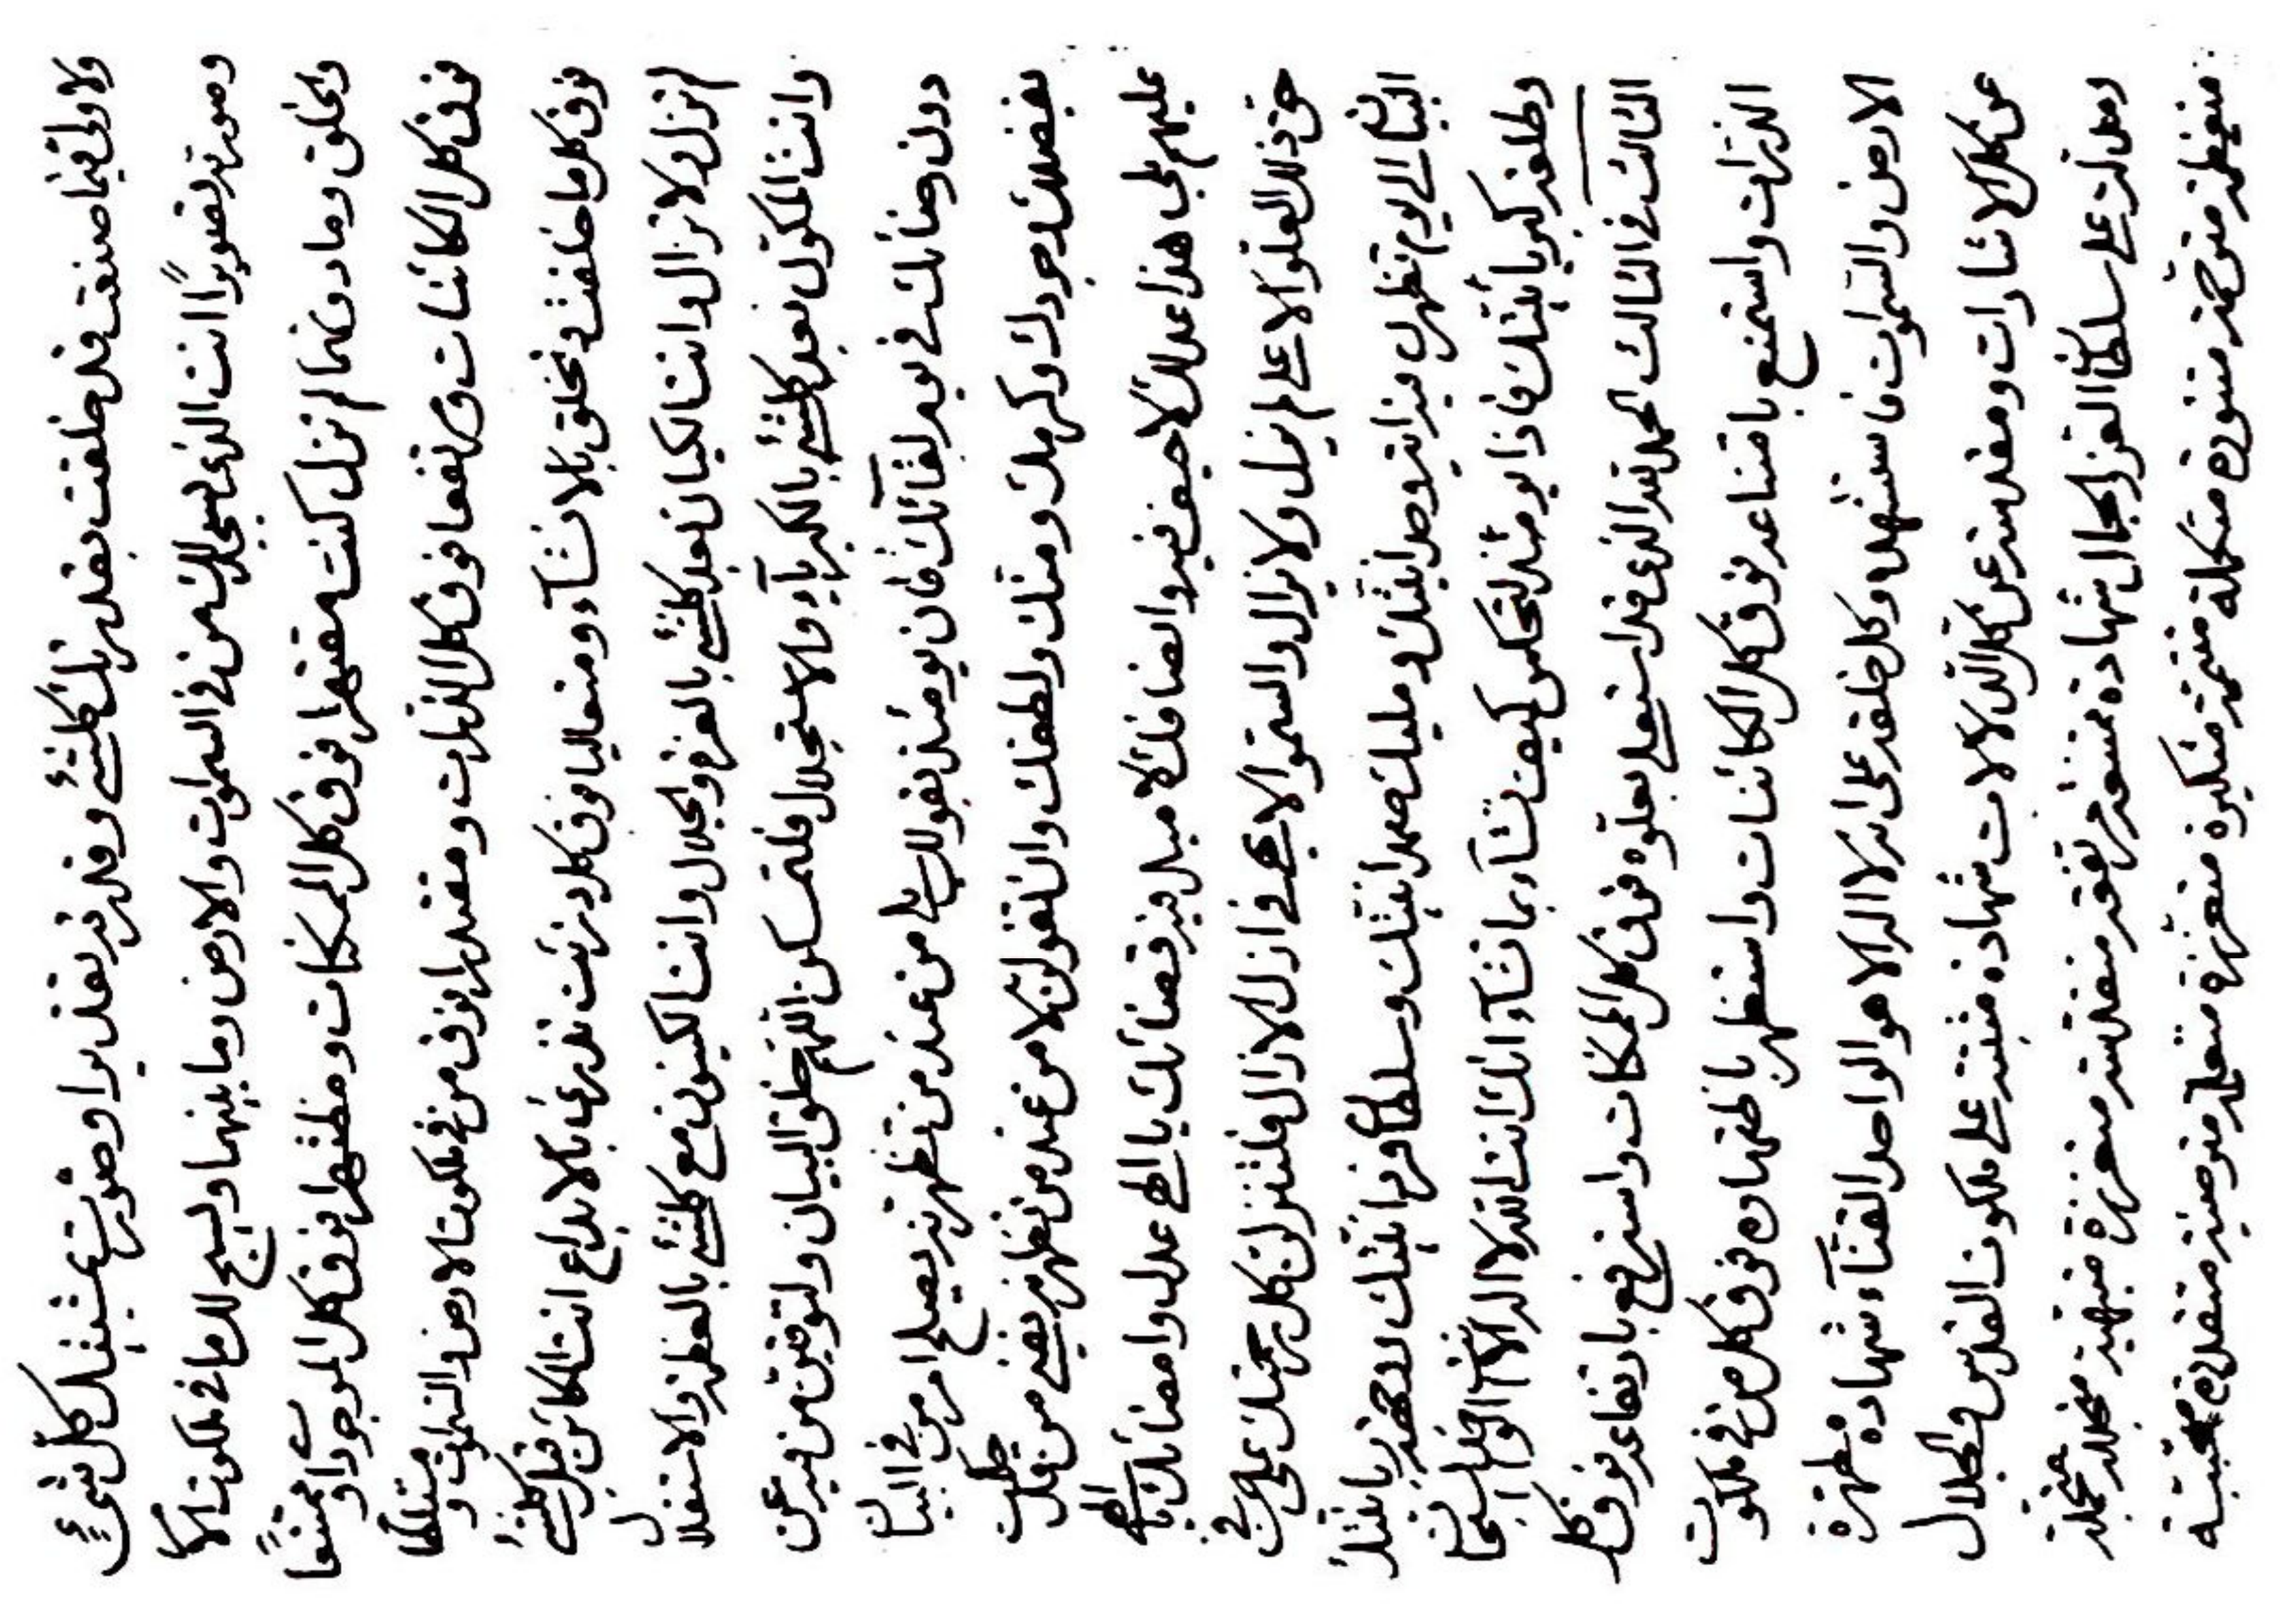 ولا ولی فیما صنعت قد خلقت بقدرتك کلشیء وقدرته تقدیرا وصورت بمشیتك کل شیء
وصورته تصویرًا انت الذی یسجد لك من فی السموات والارض وما بینهما ویسبح لك ما فی ملکوت الامر
والخلق وما دونهما لم تزل کنت مقتهرا فوق کل الممکنات ومظتهرا فوق کل الموجودات وممتنعًا
فوق کل الکائنات ومرتفعا فوق کل الذرات ومقتدرا فوق من فی ملکوت الارض والسموات و متسلطا
فوق کل ما خلقت وتخلق بالانشآء ومتعالیا فوق کل ما ذرئت وتذرء بالابداع انت الکائن قبل کلشیء
لم تزل ولا تزال وانت الکیان بعد کلشیء بالعزة والجلال وانت الکینون مع کلشیء بالعظمة والاستقلال
وانت المکون بعد کلشیء بالکبریآء والاستجلال فلتمسکن اللهم خلق البیان ولتوفقن من فیه عن
دون رضائك فی یوم لقآئك فان یومئذ بقول بلی من عند من تظهرنه یصلح امر من فی البیان
بفضلك وجودك وکرمك ومنك ولطفك وان تقولن لا من عند من تظهرنه یفنی من قد خلقت
علیهم بلی هذا عدلك لا حیف فیه وانصافك لا میل فیه فضائك یا الهی عدل وامضائك یا الهی
حق ذلك العلو الاعلی لم یزل ولا یزال والسمو الابهی فی ازل الازال فلتنزلن کل رحمتك علی من فی
البیان الی یوم تظهرن فیه آیة وحدانیتك وملیك صمدانیتك وسلطان فردانیتك ووجهة ربانیتك
وطلعة کبریائیتك فاذا یومئذ لتحکمن کیف تشآء بما تشآء انك انت الله لا اله الا انت الخ
الثالث فی الثالث الحمد لله الذی قد استعلی بعلوه فوق کل الممکنات واسترفع بارتفاعه فوق کل
الذرات واستمنع بامتناعه فوق کل الکائنات واستظهر باظتهاره فوق کل من فی ملکوت
الارض والسموات فاستشهده وکل خلقه علی انه لا اله الا هو الواحد القتآء شهادة مطهرة
عن کل الاشارات ومقدسة عن کل الدلالات شهادة مثبتة علی ملکوت القدس والجلال
ومدلة علی سلطان العز والجمال شهادة ممتنعة مرتفعة متقدسة متعززة متبهیة متجللة متجملة
متعظمة متوحمة متنورة متکملة متتممة متکبرة متعززة متعلمة متوصیة متقدرة محتبة